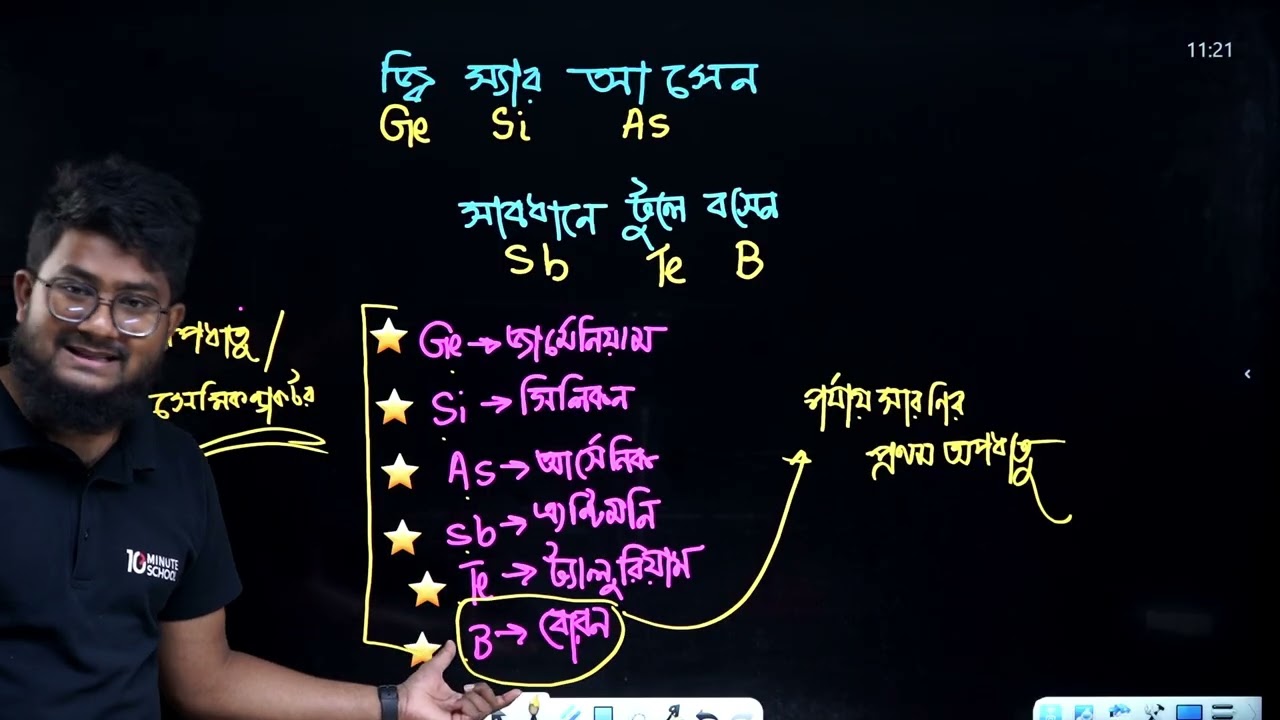 11:21
জ্বি স্যার আসেন
Ge Si As
সাবধানে টুলে বসেন
Sb Te B
পধাতু/
সেমিকন্ডাকটর
Ge→জার্মেনিয়াম
Si→সিলিকন
As→আর্সেনিক
Sb→এন্টিমনি
Te→ট্যালুরিয়াম
B→বোরন
পর্যায় সারনির
প্রথম অপধাতু
10 MINUTE
SCHOOL